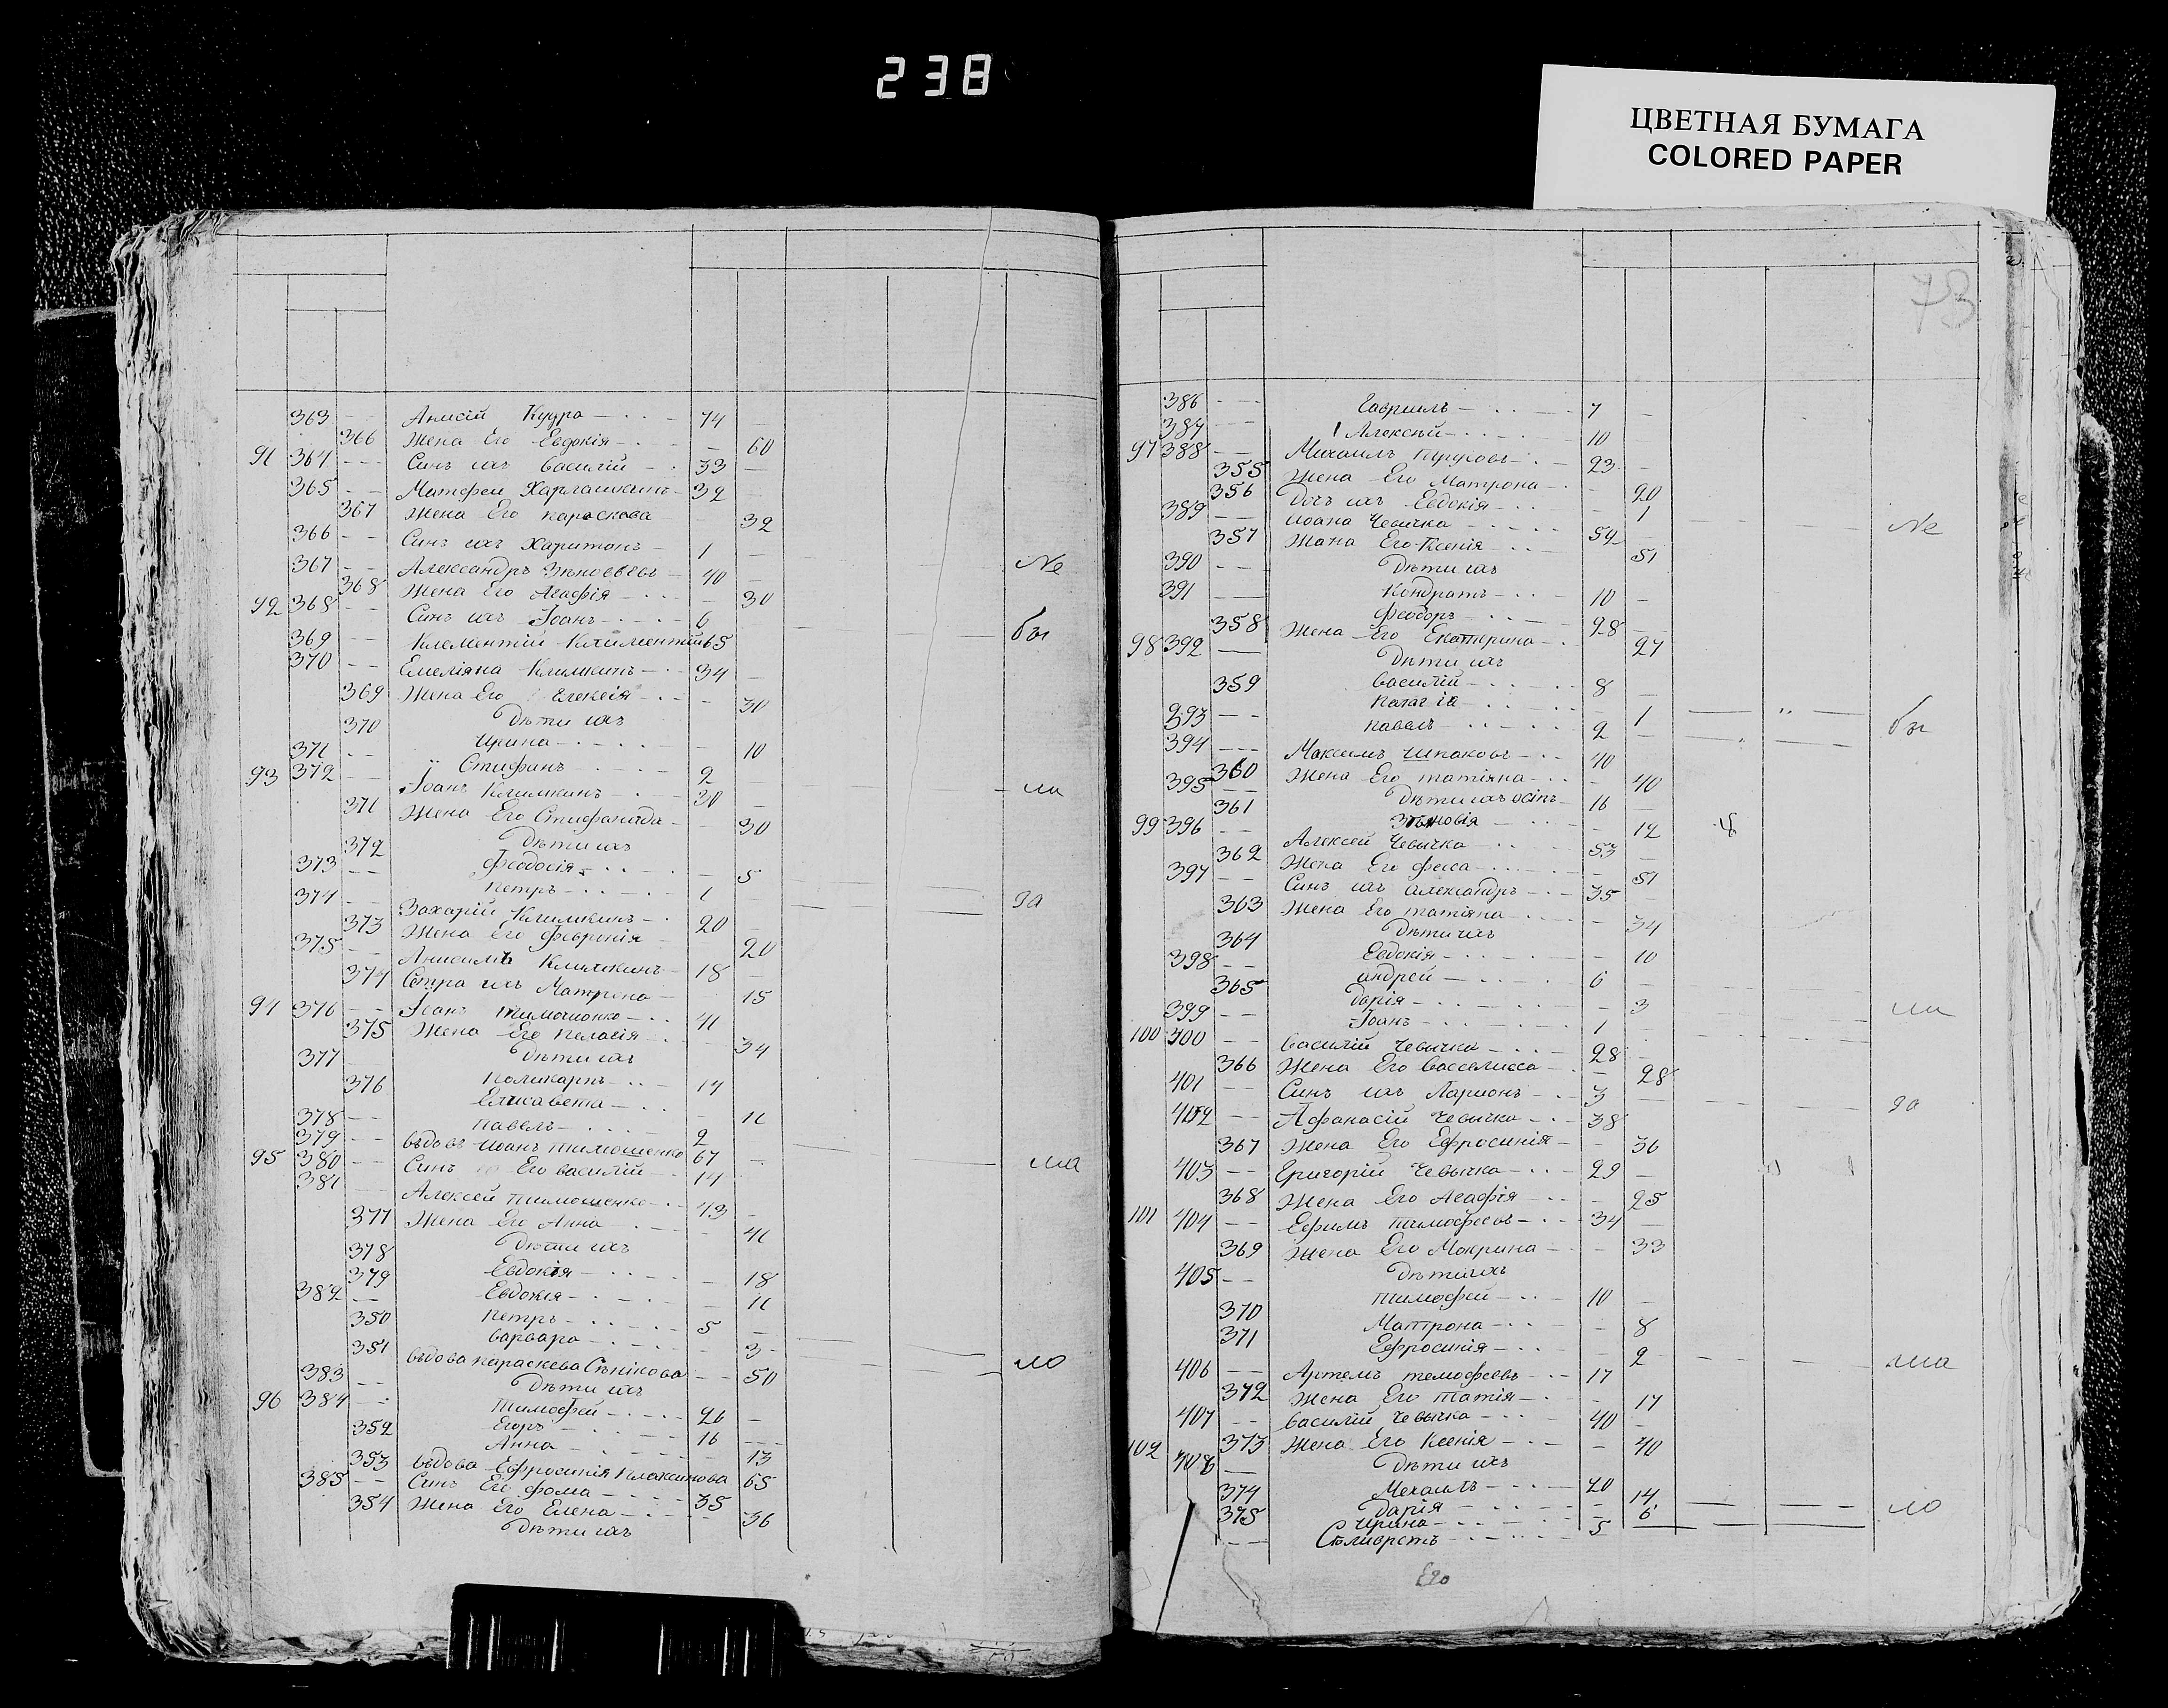 238
ЦВЕТНАЯ БУМАГА
COLORED PAPER
363 Анисій Кудра 74
366 Жена Его Евдокія 60
91 364 Синъ ихъ Василій 33
365 Матфеи Харлашкинъ 32
367 Жена Его Параскева 32
366 Синъ ихъ Харитонъ 1
367 Александръ Зѣновьевъ 40 Не
368 Жена Его Агафія 30
92 368 Синъ ихъ Іоанъ 6
369 Клементій Климентій 65 бы
370 Емеліяна Климкинъ 34
369 Жена Его 30
370 Дѣти ихъ
Ирина 10
371 Стифанъ 2
93 372 Іоанъ Климкинъ 30 ли
371 Жена Его Стифанида 30
372 Дѣти ихъ
373 Феодосія 5
Петръ 1
374 Захарій Климкинъ 20 до
373 Жена Его Февронія 20
375 Анисимъ Климкинъ 18
374 Сестра ихъ Матрона 15
94 376 Іоанъ Тимошенко 41
375 Жена Его Пелагія 34
377 Дѣти ихъ
376 Поликарпъ 14
Елисавета 11
378 Павелъ 2
379 Вдовъ Иоанъ Тимошенко 67
95 380 Синъ Его Василій 14 ма
381 Алексей Тимошенко 43
377 Жена Его Анна 41
378 Дѣти ихъ
379 Евдокія 18
382 Евдокія 11
350 Петръ 5
351 Варвара 3
Вдова Параскева Сѣнікова 50 ло
383 Дѣти ихъ
96 384 Тимофей 26
352 Егоръ 16
Анна 13
353 Вдова Ефросинія Плаксинова 65
385 Синъ Его Фома 35
354 Жена Его Елена 36
Дѣти ихъ
73
386 Гавриилъ 7
387 Алексѣй 10
97 388 Михаилъ 23
355 Жена Его Матрона 20
356 Дочъ ихъ Евдокія 1
389 Иоана Чевычка 54 Не
357 Жана Его Ксенія 51
390 Дѣти ихъ
391 Кондратъ 10
Феодоръ 28
358 Жена Его Екатерина 27
98 392 Дѣти ихъ
359 Василій 8
Палагія 1
393 Павелъ 2 бы
394 Максимъ Шпаковъ 40
395 360 Жена Его Татіяна 40
361 Дѣти ихъ Осіпъ 16
99 396 Зѣновія 12
362 Алексей Чевычка 53
397 Жена Его Фекса 51
Синъ ихъ Александръ 35
363 Жена Его Татіяна 34
364 Дѣти ихъ
398 Евдокія 10
365 Андрей 6
Дарія 3
399 Іоанъ 1 ли
100 300 Василій Чевычка 28
366 Жена Его Васселисса 28
401 Синъ ихъ Ларионъ 3
402 Афанасій Чевычка 38 до
367 Жена Его Ефросинія 36
403 Григорій Чевычка 29
368 Жена Его Агафія 25
101 404 Ефимъ Тимофеевъ 34
369 Жена Его Мокрина 33
405 Дѣти ихъ
Тимофей 10
370 Матрона 8
371 Ефросинія 2
406 Артемъ Темофеевъ 17 ма
372 Жена Его Татія 17
407 Василій Чевычка 40
373 Жена Его Ксенія 40
102 408 Дѣти ихъ
374 Мехаилъ 20
375 Дарія 14
Ирина 6 ло
Селиврстъ 5
Его